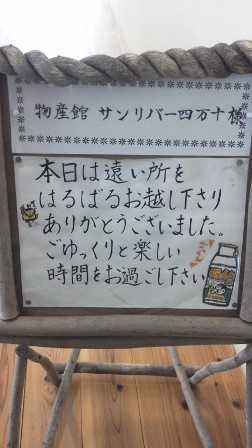 物産館 サンリバー四万十様
本日は遠い所を
はるばるお越し下さり
ありがとうございました。
ごゆっくりと楽しい
時間をお過ごし下さい